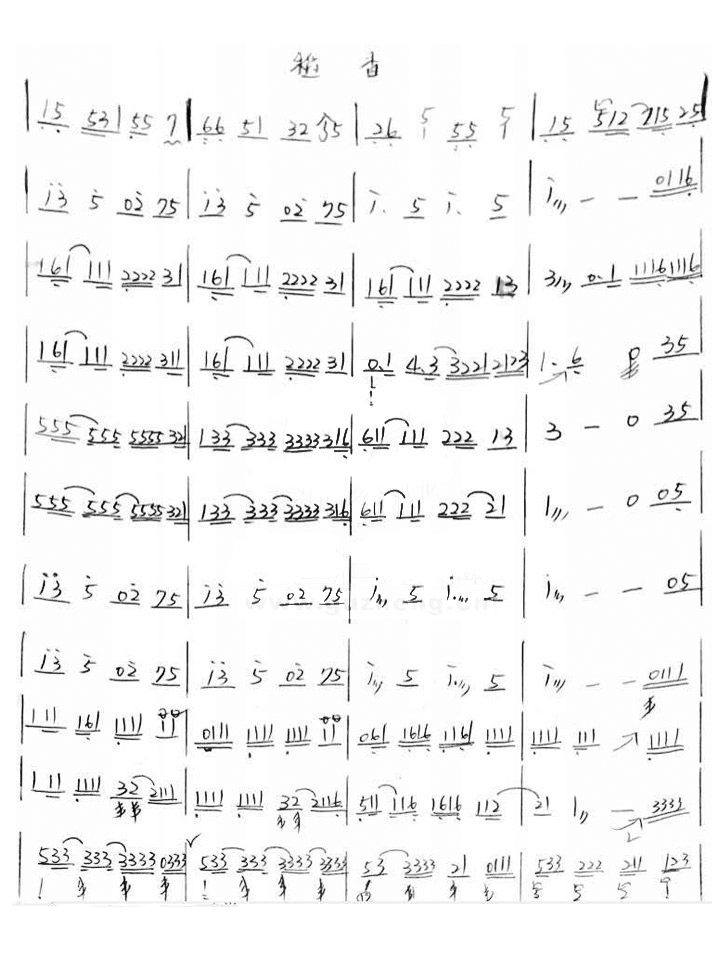 稻 香
| 15 53 | 55 7 | 66 51 32 35 | 26 5 55 5 | 15 512 715 25 |
| i3 5 02 75 | i3 5 02 75 | i. 5 i. 5 | i,,, - - 0116
| 161 111 2222 31 | 161 111 2222 31 | 161 111 2222 13 | 3,,, 0.1 1116 1116
| 161 111 2222 311 | 161 111 2222 31 | 0.1 4.3 3221 2123 | 1. 6 0 35
| 555 555 5555 321 | 133 333 3333 316 | 611 111 222 13 | 3 - 0 35
| 555 555 5555 321 | 133 333 3333 316 | 611 111 222 21 | 1,,, - 0 05
| i3 5 02 75 | i3 5 02 75 | i,,, 5 i.,,, 5 | i,,, - - 05
| i3 5 02 75 | i3 5 02 75 | i,,, 5 i.,,, 5 | i,,, - - 0111
| 111 161 1111 11 | 0111 1111 1111 11 | 061 1616 1161 1111 | 1111 111 1111
| 111 1111 32 2111 | 1111 1111 32 2116 | 511 116 1616 112 | 21 1,, - 3333
| 533 333 3333 0333 | 533 333 3333 3333 | 53 3333 21 0111 | 533 222 211 123